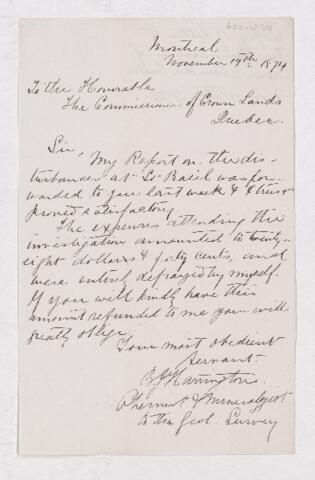 Montreal
November 19th 1874
To the Honorable
The Commissioner of Crown Lands
Quebec.
Sir,
My Report on the dis-
turbances at St Basil was for-
warded to you last week & I trust
proved satisfactory.
The expenses attending the
investigation amounted to twenty-
eight dollars & forty cents, and
were entirely defrayed by myself.
If you will kindly have this
amount refunded to me you will
greatly oblige
Your most obedient
Servant.
B J Harrington
Chemist & Mineralogist
to the Geol. Survey